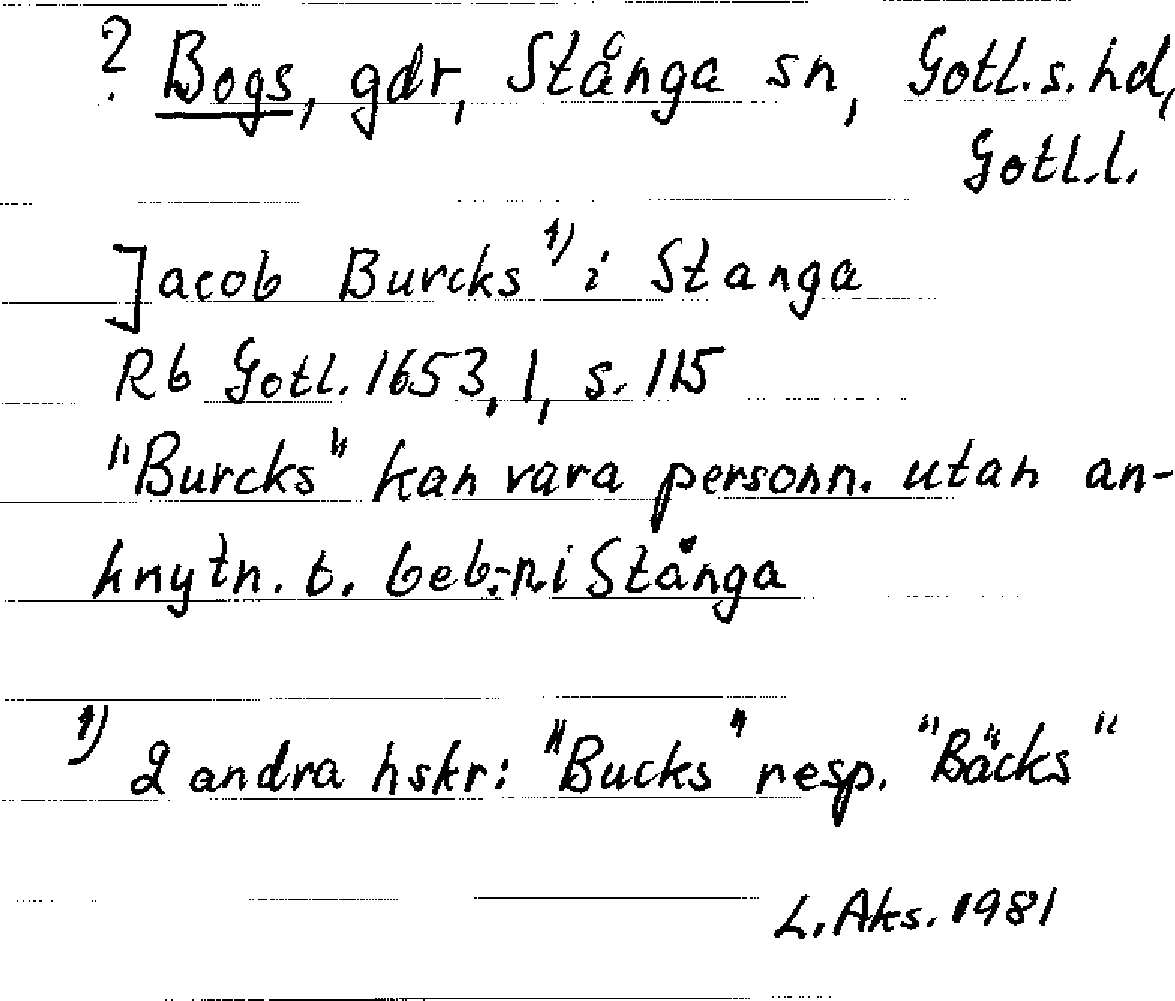 ? Bogs, gdr, Stånga sn, Gotl.s.hd,
Gotl.l.
Jacob Burcks 1) i Stanga
Rb Gotl. 1653, 1, s. 115
"Burcks" kan vara personn. utan an-
knytn. t. beb:n. i Stånga
1) 2 andra hskr: "Bucks" resp. "Bäcks"
L. Aks. 1981